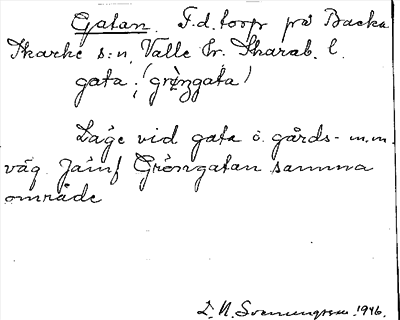 Gatan. F.d. torp på Backa
Skarke s:n, Valle hr. Skarab. l.
gata; (gröngata)
Läge vid gata o. gårds- m.m.
väg. Jämf Gröngatan samma
område
D. N. Svenningsson 1946.